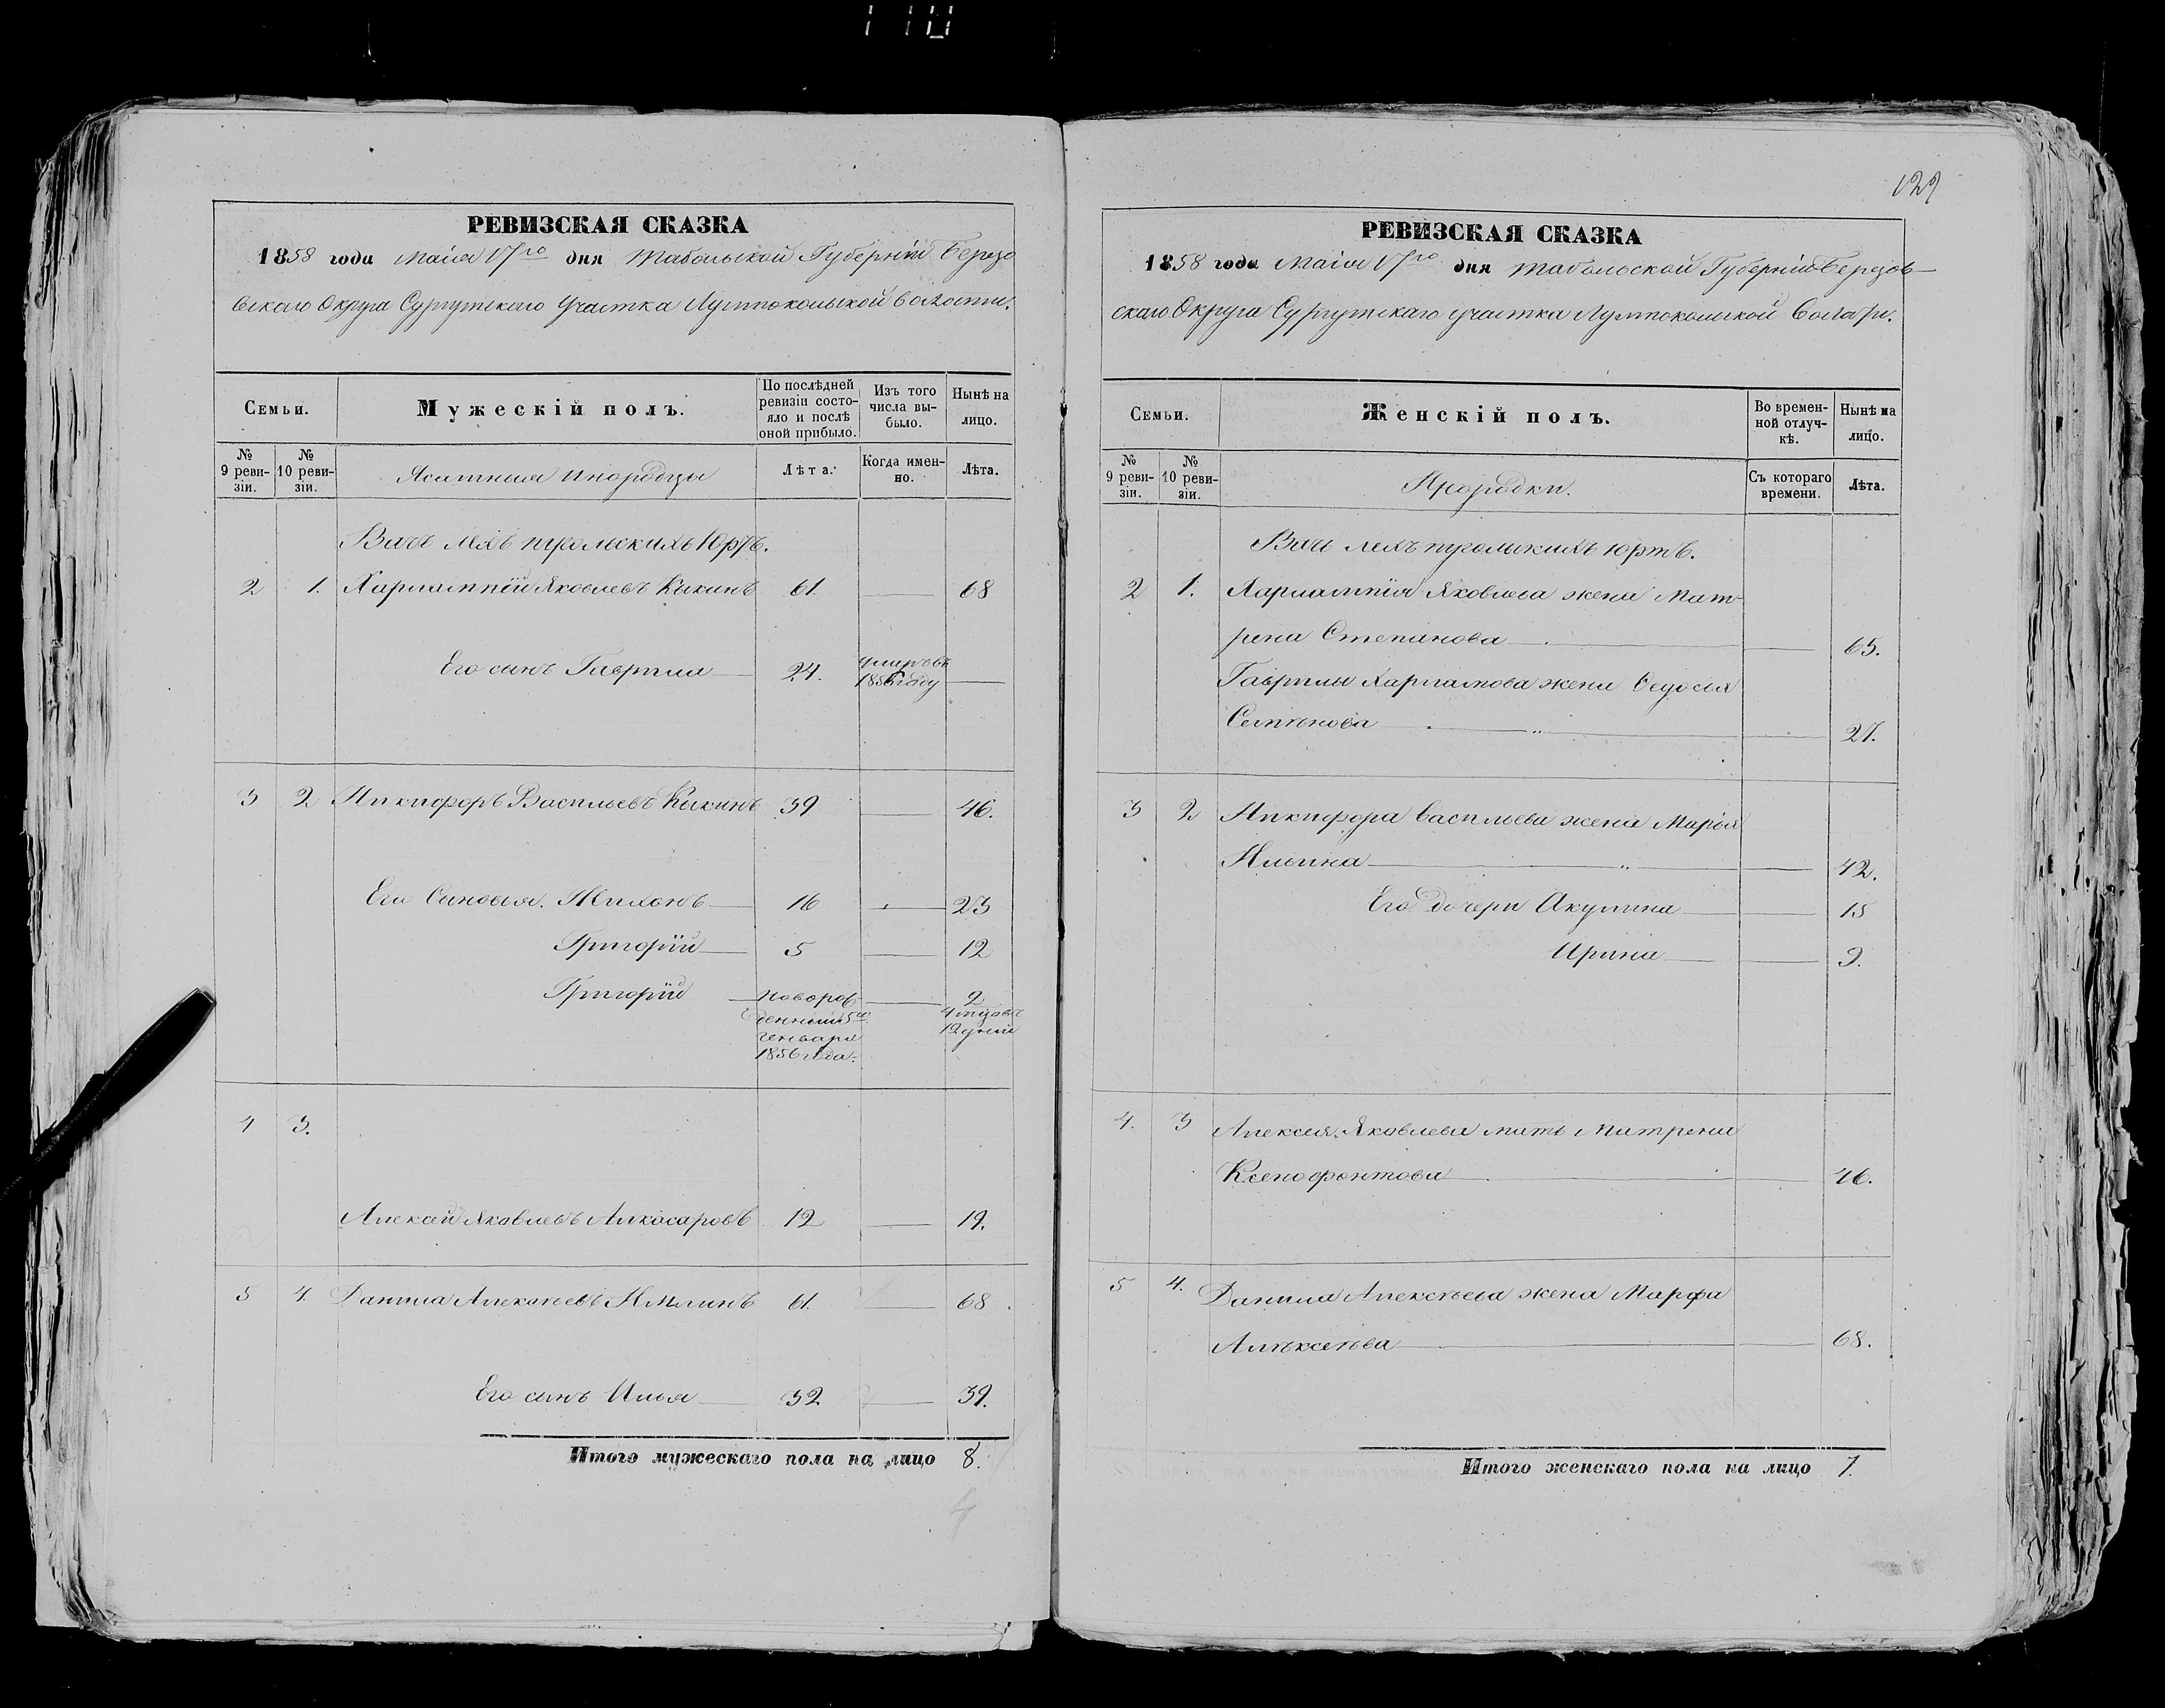 110
РЕВИЗСКАЯ СКАЗКА
1858 года Маія 17го дня Табольской Губерніи Березо
вскаго Округа Сургутскаго Участка Лумпокольской волости.
Семьи.
Мужескій полъ.
По послѣдней ревизіи состояло и послѣ оной прибыло.
Изъ того числа выбыло.
Нынѣ на лицо.
№ 9 ревизіи.
№ 10 ревизіи.
Ясашныя инородцы
Лѣта.
Когда именно.
Лѣта.
Вачъ лехъ пугольскихъ Юртъ.
2 1. Харлампій Яковлевъ Кыкинъ 61. 68
Его сынъ Гаврила 24. умеръ въ
1856 году
3 2 Никифоръ Васильевъ Кыкинъ 39 46.
Его Сыновья. 16 23
Григорій 5 12
Григорій новорож 2
денный 5го
Генваря 12 дней
1856 года.
4 3.
Алексей Яковлевъ 12 19.
5 4. Данила Алексѣевъ 61. 68.
Его сынъ Илья 32 39.
Итого мужескаго пола на лицо 8.
РЕВИЗСКАЯ СКАЗКА
1858 года Маія 17го дня Табольской Губерніи Березов
скаго Округа Сургутскаго участка Лумпокольской
Семьи.
Женскій полъ.
Во временной отлучкѣ.
Нынѣ на лицо.
№ 9 ревизіи.
№ 10 ревизіи.
Съ котораго времени.
Лѣта.
Вачъ лехъ пугольскихъ юртъ.
2 1. Харлампія Яковлева жена Мат
рена Степанова 65.
Гаврилы Харлампова жена Федосья
Семѣнова 27.
3 2 Никифора Васильева жена Марья
Ильина 42.
Его дочери Акулина 15
Ирина 9.
4. 3 Алексея Яковлева мать Матрена
Ксенофонтова 46.
5 4. Данила Алексѣева жена Марфа
Алѣксеѣва 68.
Итого женскаго пола на лицо 7.